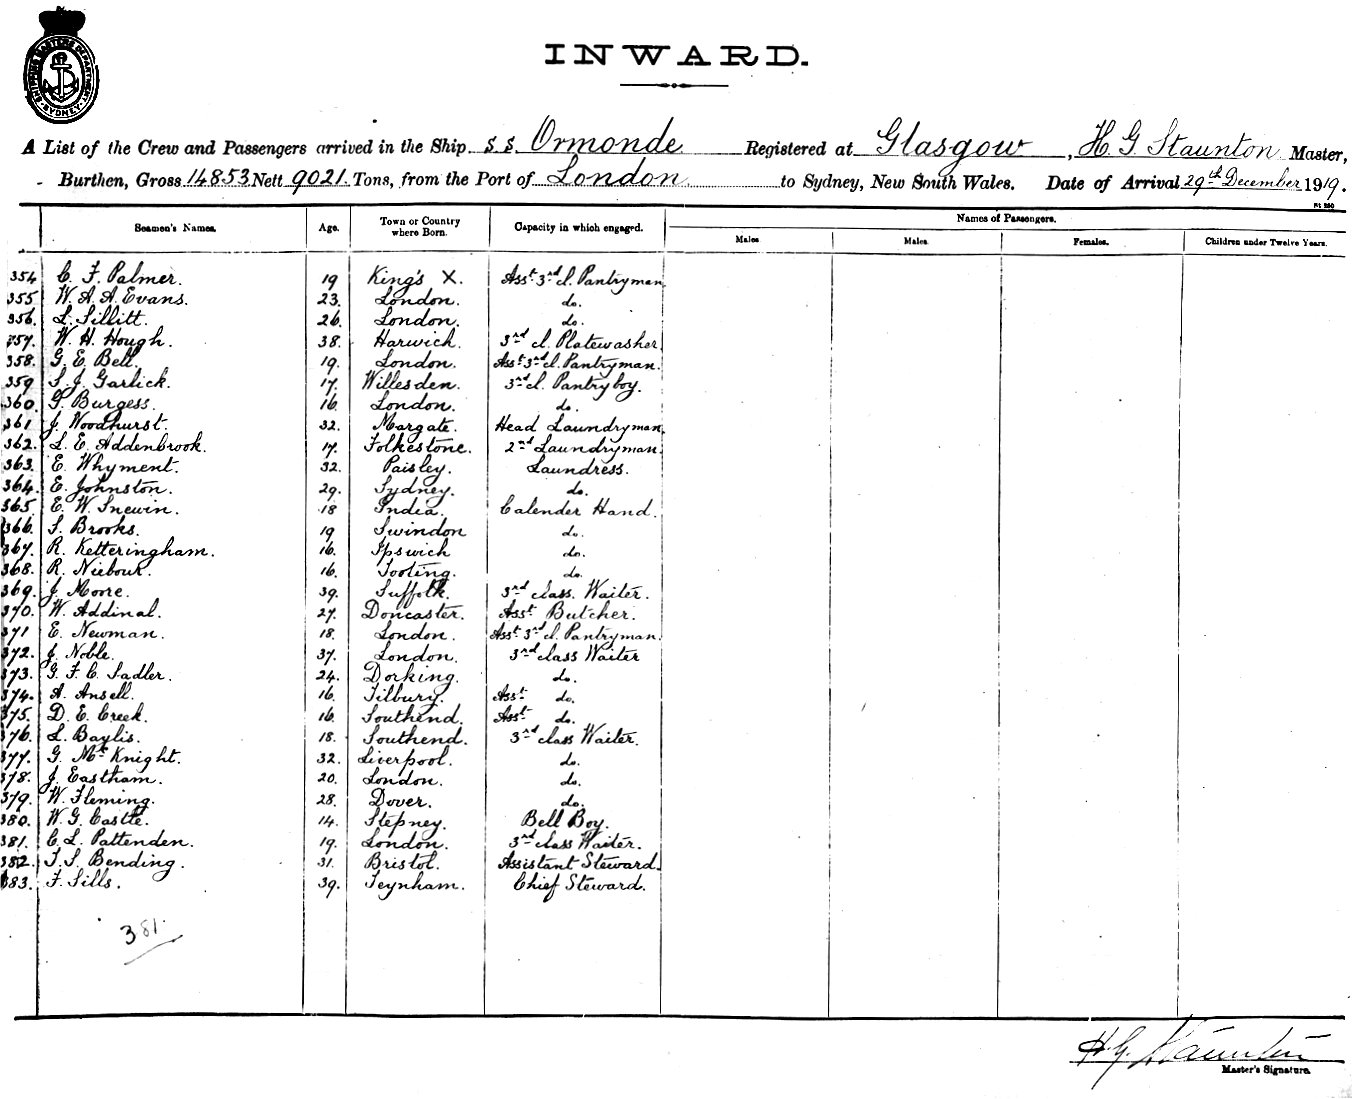 SHIPPING MASTERS DEPARTMENT SYDNEY
INWARD.
A List of the Crew and Passengers arrived in the Ship S.S. Ormonde Registered at Glasgow, H. G Staunton Master,
Burthen, Gross 14853 Nett 9021. Tons, from the Port of London to Sydney, New South Wales. Date of Arrival 29th December 1919.
Seamen's Names. Age. Town or Country where Born. Capacity in which engaged. Names of Passengers.
Males Males Females. Children under Twelve Years.
354 C. F. Palmer. 19 King's X. Asst 3rd cl. Pantryman
355 W. A. A. Evans. 23. London. do.
356. L. Sillitt. 26. London. do.
357. W. H. Hough. 38. Harwick. 3rd cl. Platewasher.
358. G. E. Bell. 19. London. Asst 3rd cl. Pantryman.
359 S. J. Garlick. 17. Willesden. 3rd cl. Pantry boy.
360 G. Burgess. 16. London. do.
361 J. Woodhurst. 32. Margate. Head Laundryman.
362. L. E. Addenbrook. 17. Folkestone. 2nd Laundryman.
363. E. Whyment. 32. Paisley. Laundress.
364. E. Johnston. 29. Sydney. do.
365 E. W. Snewin. 18 India. Calender Hand.
366. S. Brooks. 19 Swindon do.
367. R. Ketteringham. 16. Ipswich do.
368. R. 16. Tooting. do.
369. J. Moore. 39. Suffolk. 3rd class. Waiter.
370. W. Addinal. 27. Doncaster. Asst Butcher.
371 E. Newman. 18. London. Asst 3rd cl. Pantryman.
372. J. Noble. 37. London. 3rd class Waiter
373. G. F. C. Sadler. 24. Dorking. do.
374. A. Ansell. 16. Tilbury. Asst do.
375. D. E. Creek. 16. Southend. Asst do.
376. L. Baylis. 18. Southend. 3rd class Waiter.
377. G. Mc Knight. 32. Liverpool. do.
378. J. Eastham. 20. London. do.
379. W. Fleming. 28. Dover. do.
380. W. G. Castle. 14. Stepney. Bell Boy.
381. C. L. Pattenden. 19. London. 3rd class Waiter.
382. T. S. Bending. 31. Bristol. Assistant Steward.
383. F. Sills. 39. Teynham. Chief Steward.
381.
H. G. Staunton
Master's Signature.